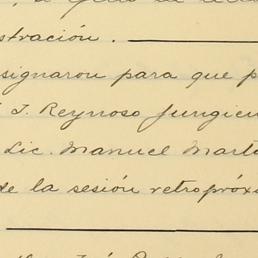 stración.
signaron para que p
J. Reynoso fungien
Lic. Manuel Mart
de la sesión retropróxi